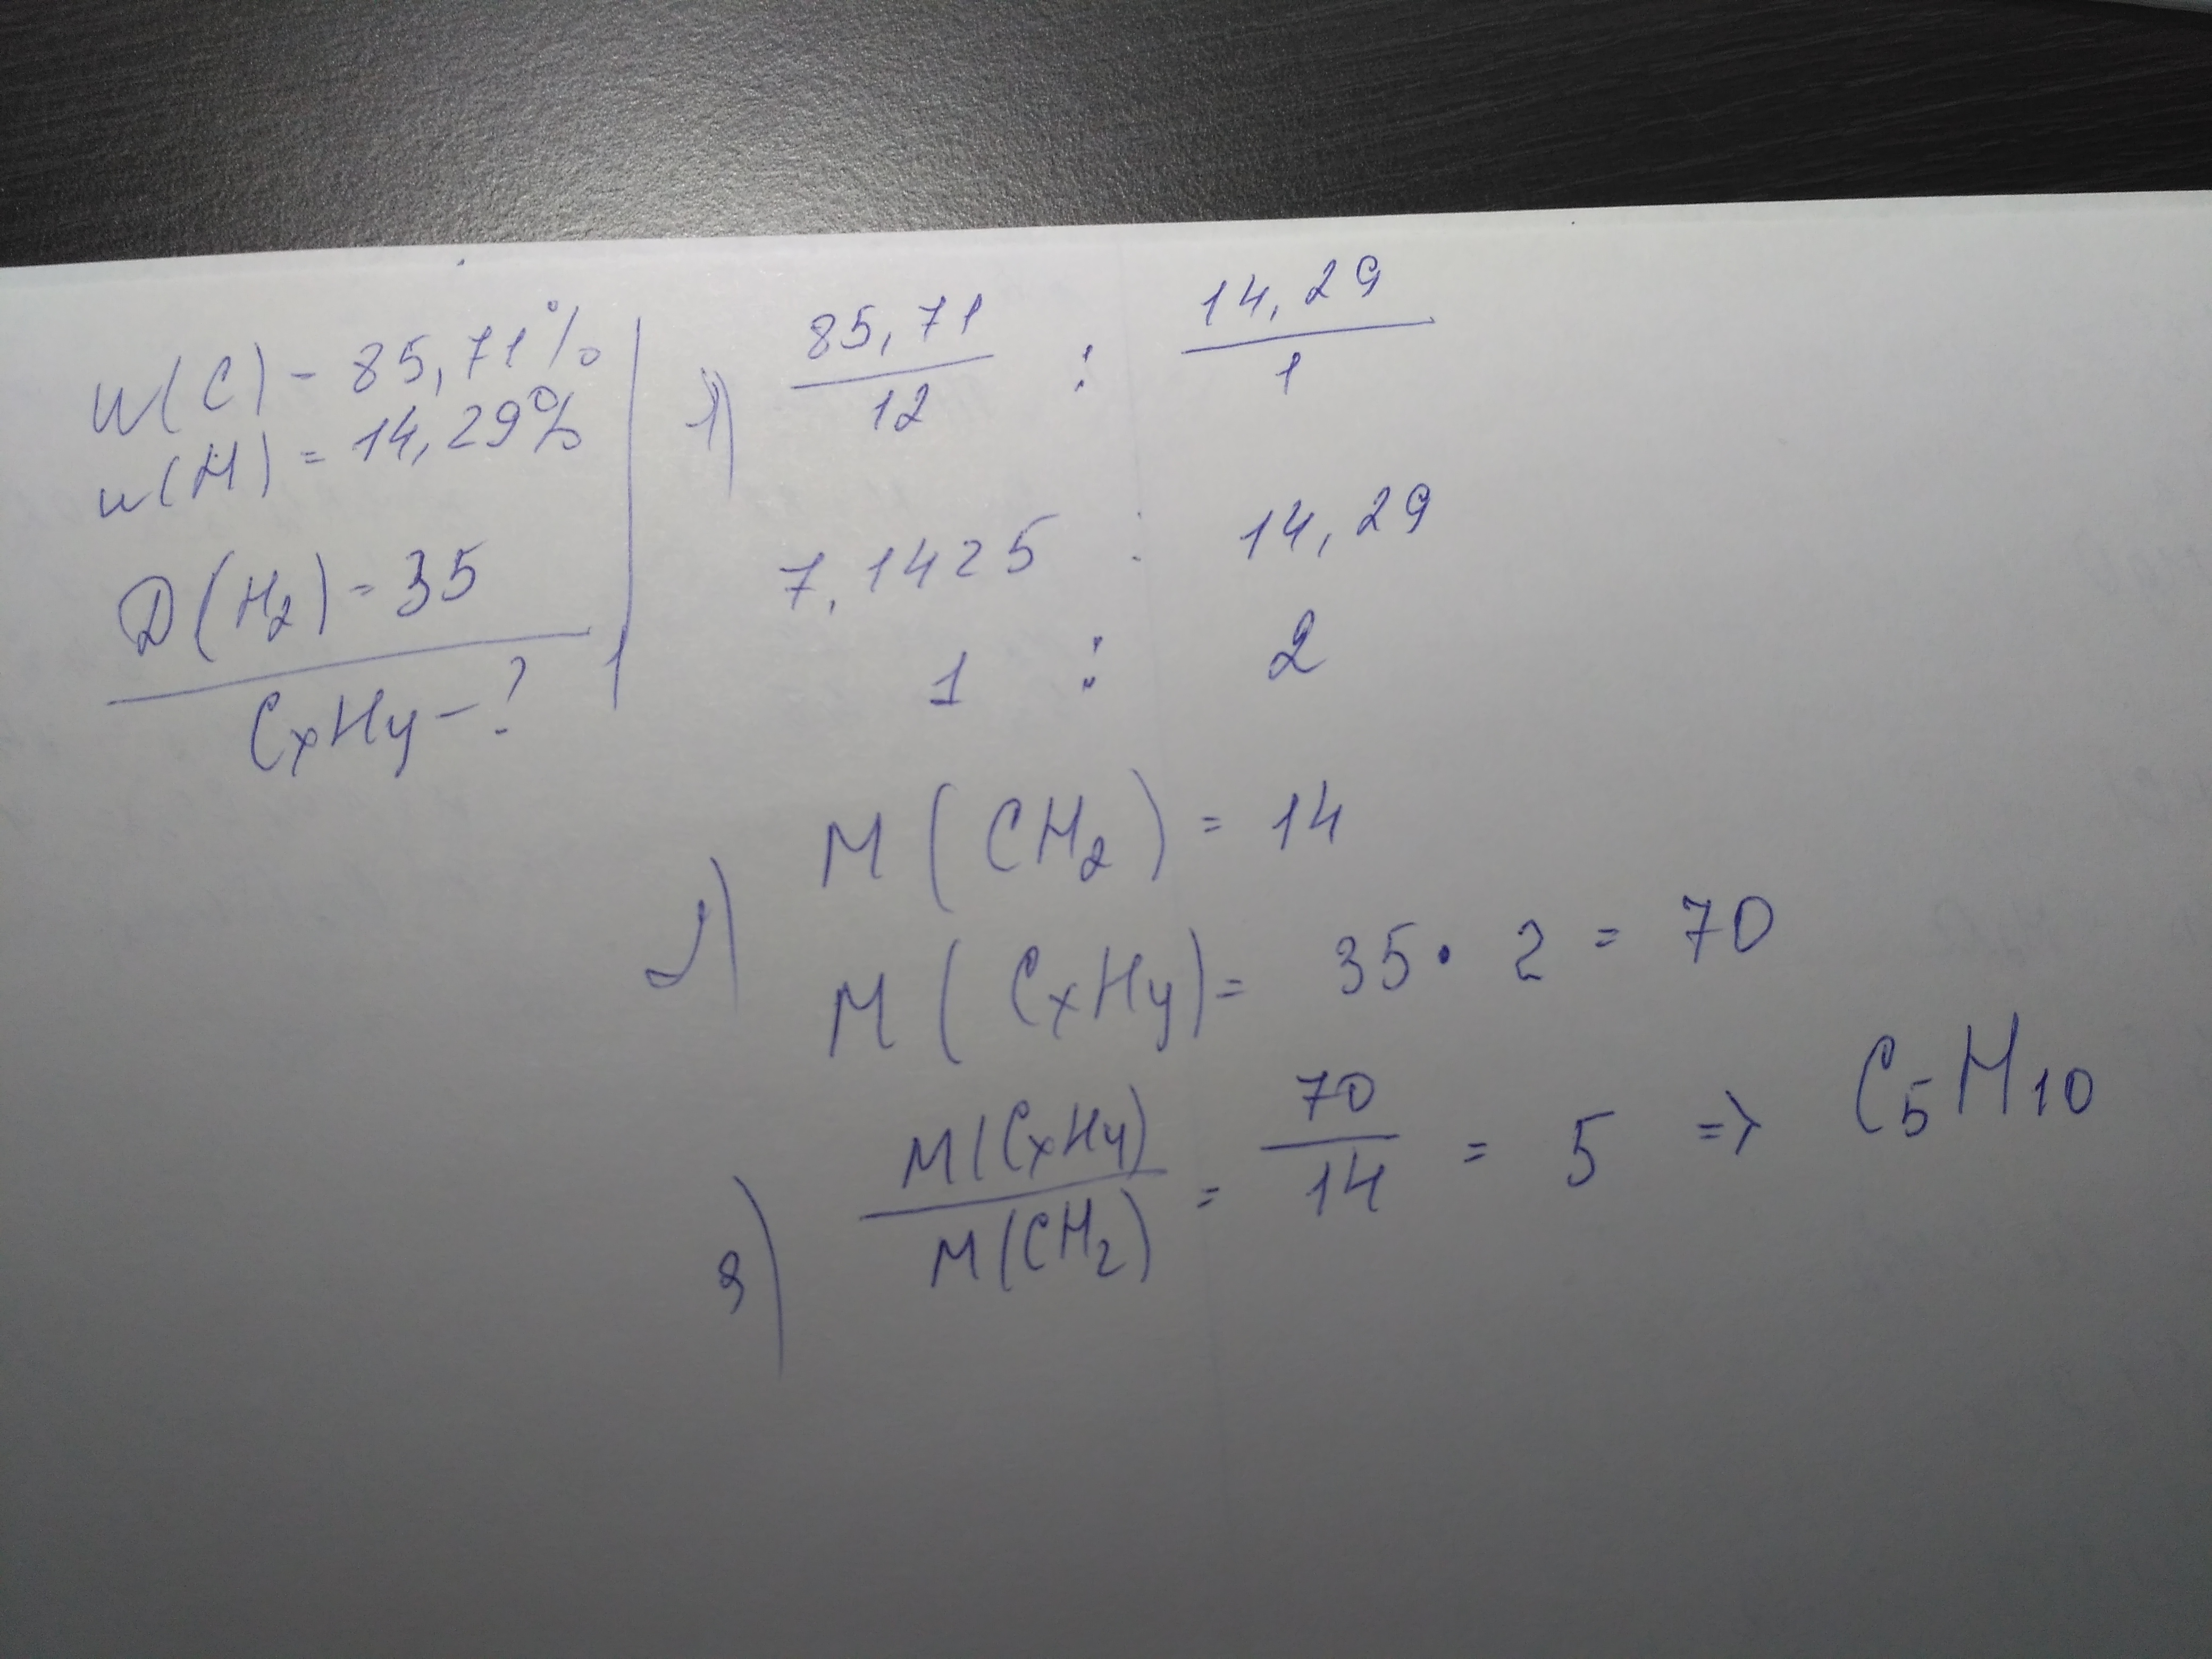 w(C) - 85,71%
w(H) = 14,29%
D(H2) = 35
CxHy - ?
1) 85,71 / 12 : 14,29 / 1
7,1425 : 14,29
1 : 2
2) M(CH2) = 14
M(CxHy) = 35 • 2 = 70
3) M(CxHy) / M(CH2) = 70 / 14 = 5 => C5H10